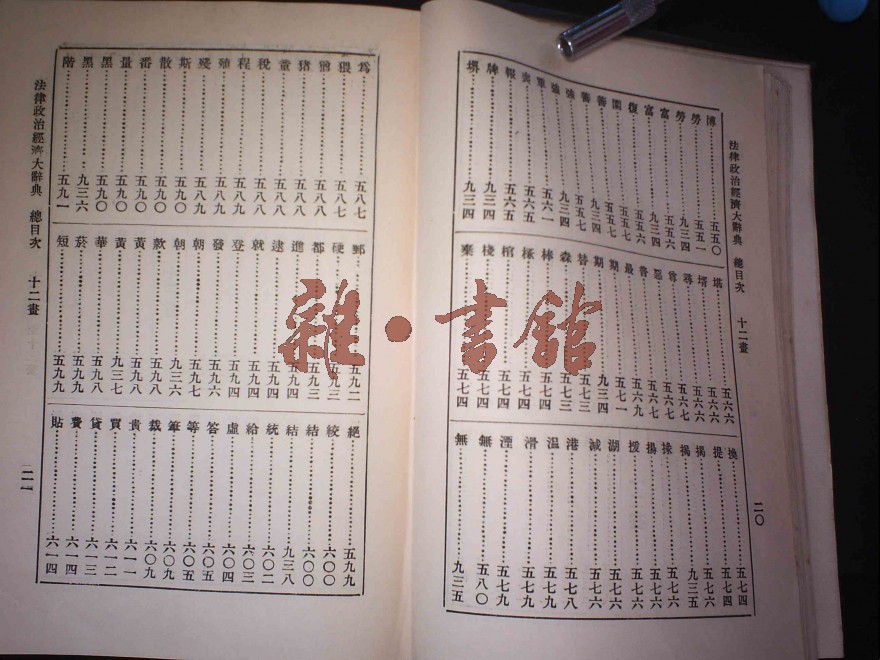 法律政治經濟大辭典 總目次 十二畫
二〇
博 五五〇
勞 五五一
勞 九三四
富 五五六
富 九三四
復 五五六
善 九三四
善 五五七
強 九三四
報 五六五
牌 九三四
堺 九三四
塔 五六六
壻 五六六
尋 五六六
尊 五六七
惡 五六七
普 五六七
最 五六九
期 五七一
期 九三四
替 五七三
森 五七三
棒 五七四
棺 五七四
棧 五七四
棄 五七四
換 五七四
提 五七六
揭 九三五
揭 五七六
揚 五七六
援 五七六
湖 五七六
減 五七六
港 五七八
溫 五七九
滑 五七九
湮 五七九
無 五八〇
無 九三五
法律政治經濟大辭典 總目次 十二畫
二一
爲 五八七
猥 五八七
猶 五八八
猪 五八八
童 五八八
稅 五八八
程 五八九
殖 五八九
殘 五八九
斯 五九〇
散 五九〇
番 五九〇
量 五九〇
黑 五九〇
黑 九三六
階 五九一
郵 五九二
硬 五九三
都 五九三
進 五九四
逮 五九四
就 五九四
登 五九四
發 五九六
朝 五九七
朝 九三六
敦 五九八
黃 五九八
黃 九三七
華 五九八
菸 五九九
短 五九九
絕 五九九
絞 六〇〇
結 六〇〇
結 九三八
統 六〇二
給 六〇三
虛 六〇四
答 六〇五
等 六〇五
筆 六〇九
裁 六〇九
貴 六一一
買 六一二
貸 六一三
費 六一四
貼 六一四
雜·書館